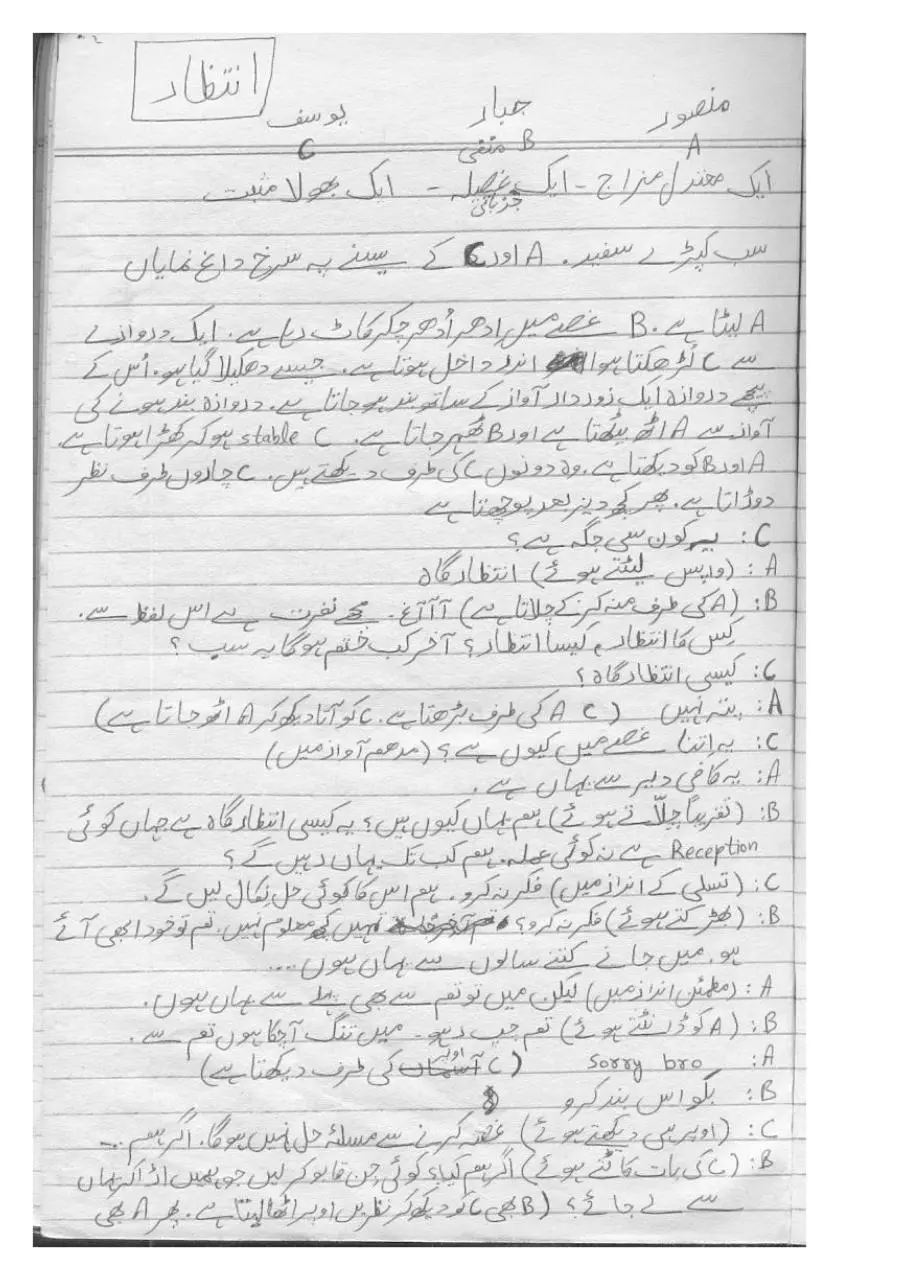 انتظار
منصور جبار یوسف
A B منفی C
ایک معتدل مزاج - ایک غصیلہ - ایک بھولا مثبت
جذباتی
سب کپڑے سفید. A اور C کے سینے پہ سرخ داغ نمایاں
A لیٹا ہے. B غصے میں اِدھر اُدھر چکر کاٹ رہا ہے. ایک دروازے
سے C لڑھکتا ہوا اندر داخل ہوتا ہے. جیسے دھکیلا گیا ہو. اُس کے
پیچھے دروازہ ایک زوردار آواز کے ساتھ بند ہو جاتا ہے. دروازہ بند ہونے کی
آواز سے A اٹھ بیٹھتا ہے اور B ٹھہر جاتا ہے. C stable ہو کر کھڑا ہوتا ہے.
A اور B کو دیکھتا ہے. وہ دونوں C کی طرف دیکھتے ہیں. C چاروں طرف نظر
دوڑاتا ہے. پھر کچھ دیر بعد پوچھتا ہے
C: یہ کون سی جگہ ہے؟
A: (واپس لیٹتے ہوئے) انتظار گاہ
B: (A کی طرف منہ کر کے چلاتا ہے) آآآغ. مجھے نفرت ہے اس لفظ سے.
کِس کا انتظار، کیسا انتظار؟ آخر کب ختم ہو گا یہ سب؟
C: کیسی انتظار گاہ؟
A: پتہ نہیں (C A کی طرف بڑھتا ہے. C کو آتا دیکھ کر A اٹھ جاتا ہے)
C: یہ اِتنا غصے میں کیوں ہے؟ (مدھم آواز میں)
A: یہ کافی دیر سے یہاں ہے.
B: (تقریباً چِلّاتے ہوئے) ہم یہاں کیوں ہیں؟ یہ کیسی انتظار گاہ ہے جہاں کوئی
Reception ہے نہ کوئی عملہ. ہم کب تک یہاں رہیں گے؟
C: (تسلی کے انداز میں) فکر نہ کرو. ہم اس کا کوئی حل نکال لیں گے.
B: (بھڑکتے ہوئے) فکر نہ کرو؟ تمہیں کچھ معلوم نہیں. تم تو خود ابھی آئے
ہو. میں جانے کتنے سالوں سے یہاں ہوں....
A: (مطمئن انداز میں) لیکن میں تو تم سے بھی پہلے سے یہاں ہوں.
B: (A کو ڈانٹتے ہوئے) تم چپ رہو. میں تنگ آ چکا ہوں تم سے.
A: sorry bro (C اوپر کی طرف دیکھتا ہے)
B: بکواس بند کرو
C: (اوپر ہی دیکھتے ہوئے) غصہ کرنے سے مسئلہ حل نہیں ہو گا. اگر ہم ...
B: (C کی بات کاٹتے ہوئے) اگر ہم کیا؟ کوئی جن قابو کر لیں جو ہمیں اڑا کر یہاں
سے لے جائے؟ (B بھی C کو دیکھ کر نظریں اوپر اٹھا لیتا ہے. پھر A بھی